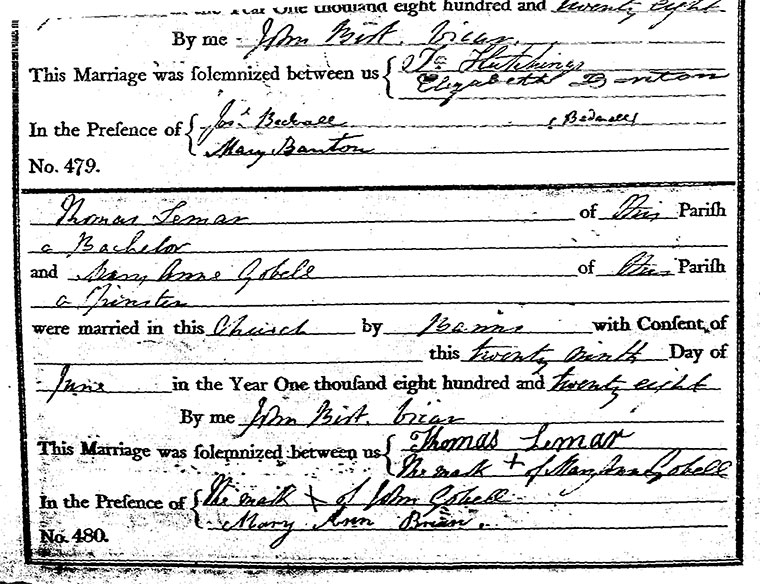 in the Year One thousand eight hundred and twenty eight
By me John Bist. Vicar.
This Marriage was solemnized between us { Jas Hutchings
Elizabeth Banton
In the Presence of { Josh Bednall (Bednall)
Mary Banton
No. 479.
Thomas Lemar of This Parish
a Bachelor
and Mary Anne Gobell of This Parish
a Spinster
were married in this Church by Banns with Consent of
this twenty ninth Day of
June in the Year One thousand eight hundred and twenty eight
By me John Bist. Vicar
This Marriage was solemnized between us { Thomas Lemar
The mark + of Mary Anne Gobell
In the Presence of { The mark + of John Gobell
Mary Ann Brian.
No. 480.